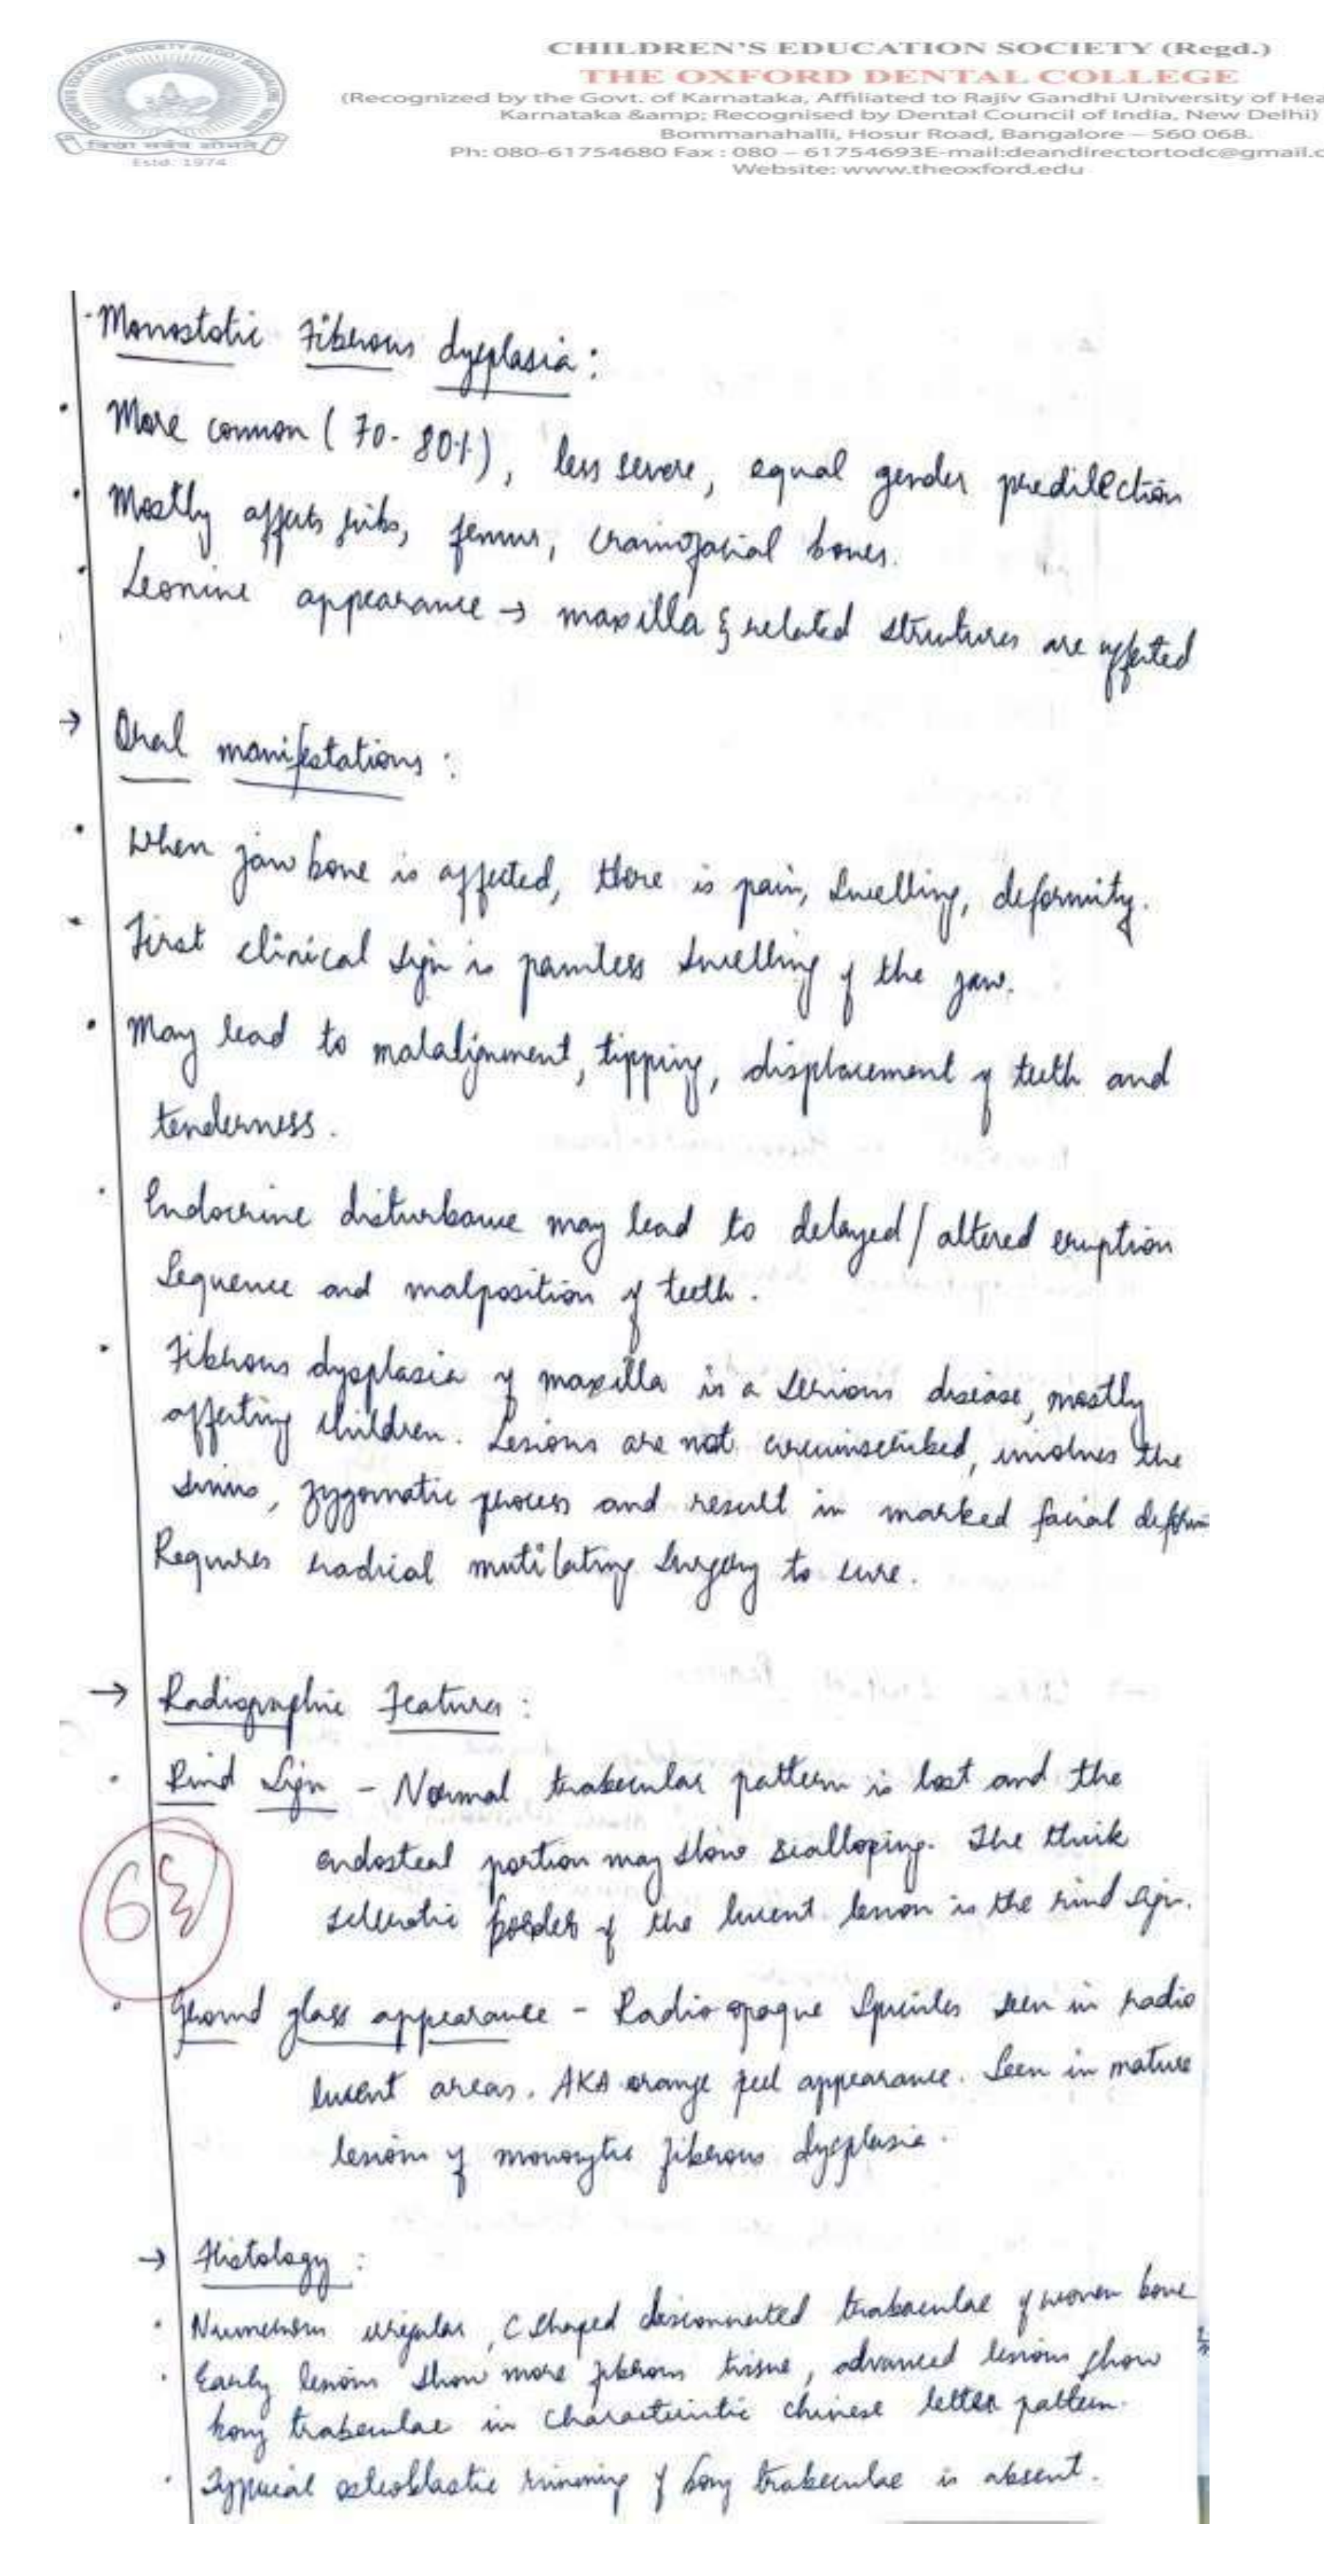 CHILDREN'S EDUCATION SOCIETY (Regd.)
THE OXFORD DENTAL COLLEGE
(Recognized by the Govt. of Karnataka, Affiliated to Rajiv Gandhi University of Hea
Karnataka &amp; Recognised by Dental Council of India, New Delhi)
Bommanahalli, Hosur Road, Bangalore – 560 068.
Ph: 080-61754680 Fax : 080 – 61754693E-mail:deandirectortodc@gmail.c
Website: www.theoxford.edu
Estd: 1974
Monostotic Fibrous dysplasia:
· More common (70-80%), less severe, equal gender predilection
· Mostly affects ribs, femur, craniofacial bones.
· Leonine appearance → maxilla & related structures are affected
→ Oral manifestations :
· When jaw bone is affected, there is pain, swelling, deformity.
· First clinical sign is painless swelling of the jaw.
· May lead to malalignment, tipping, displacement of teeth and
tenderness.
· Endocrine disturbance may lead to delayed/altered eruption
sequence and malposition of teeth.
· Fibrous dysplasia of maxilla is a serious disease, mostly
affecting children. Lesions are not circumscribed, involves the
sinus, zygomatic process and result in marked facial
Requires radical mutilating surgery to cure.
→ Radiographic Features :
· Rind Sign - Normal trabecular pattern is lost and the
endosteal portion may show scalloping. The thick
sclerotic border of the lucent lesion is the rind sign.
6
· Ground glass appearance - Radio opaque spicules seen in radio
lucent areas. AKA orange peel appearance. Seen in mature
lesions of fibrous dysplasia.
→ Histology :
· Numerous irregular, C shaped disconnected trabaculae of woven bone
· Early lesions show more fibrous tissue, advanced lesions show
bony trabeculae in characteristic chinese letter pattern.
· Typical osteoblastic rimming of bony trabeculae is absent.